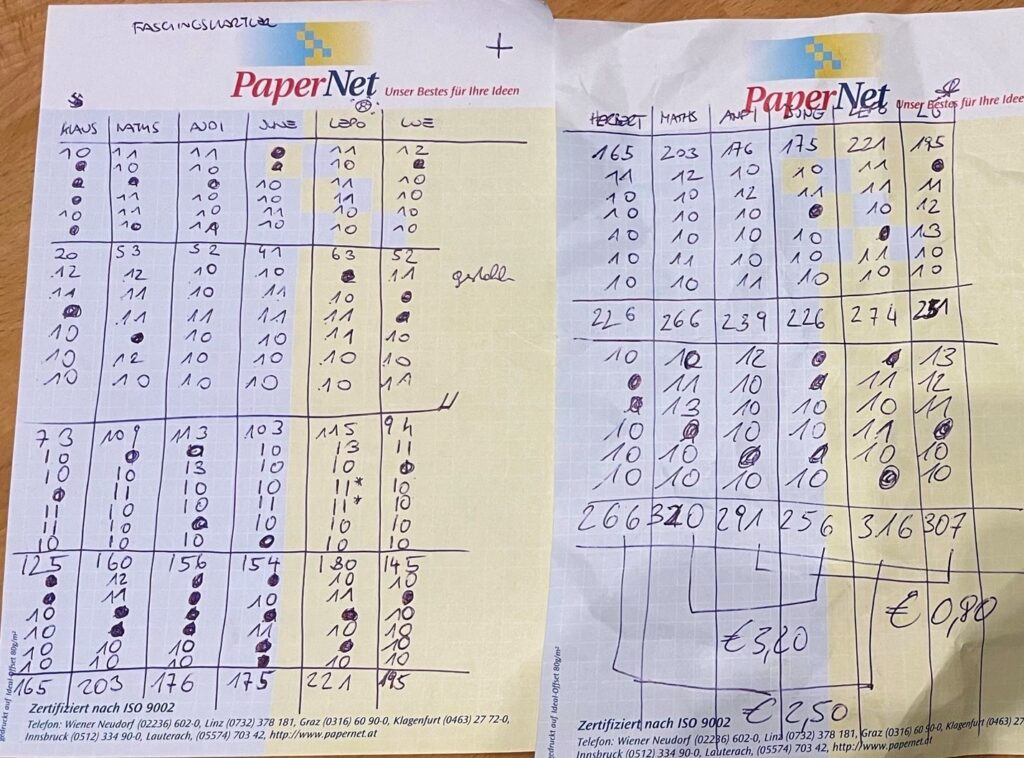 FASCHINGSKARTLER
PaperNet Unser Bestes für Ihre Ideen
KLAUS MATHS ANDI JUNE LEPO LUE
10 11 11 ● 11 12
● 10 10 ● 10 ●
● ● ● 10 11 10
● 11 10 10 11 10
10 11 10 11 10 10
● 10 11 10 10 10
20 53 52 41 63 52
12 12 10 10 ● 11
11 11 10 11 10 ●
● 11 11 11 11 ●
10 ● 10 10 11 10
10 12 10 10 10 10
10 10 10 10 10 11
73 109 113 103 115 94
10 ● ● 10 13 11
10 10 13 10 10 ●
● 11 10 10 11* 10
11 11 10 11 11* 10
11 10 ● 10 10 10
10 10 10 ● 10 10
125 160 156 154 180 145
● 12 ● ● 10 10
● 11 ● 10 11 ●
10 ● ● ● ● 10
10 ● 10 11 10 10
10 10 10 ● ● 10
10 10 10 ● 10 10
165 203 176 175 221 195
Zertifiziert nach ISO 9002
Telefon: Wiener Neudorf (02236) 602-0, Linz (0732) 378 181, Graz (0316) 60 90-0, Klagenfurt (0463) 27 72-0,
Innsbruck (0512) 334 90-0, Lauterach, (05574) 703 42, http://www.papernet.at
gedruckt auf Ideal-Offset 80g/m²
PaperNet Unser Bestes für Ihre Ideen
HERBERT MATHS ANDI JUNG LEPO LU
165 203 176 175 221 195
11 12 10 10 11 ●
10 10 12 11 11 11
10 10 10 ● 10 12
10 10 10 10 ● 13
10 11 10 10 11 10
10 10 11 10 10 10
226 266 239 226 274 251
10 10 12 ● ● 13
● 11 10 ● 11 12
● 13 10 10 10 11
10 ● 10 10 11 ●
10 10 ● ● 10 10
10 10 10 10 ● 10
266 320 291 256 316 307
€ 0,80
€ 3,20
€ 2,50
Zertifiziert nach ISO 9002
Telefon: Wiener Neudorf (02236) 602-0, Linz (0732) 378 181, Graz (0316) 60 90-0, Klagenfurt (0463) 27
Innsbruck (0512) 334 90-0, Lauterach, (05574) 703 42, http://www.papernet.at
gedruckt auf Ideal-Offset 80g/m²